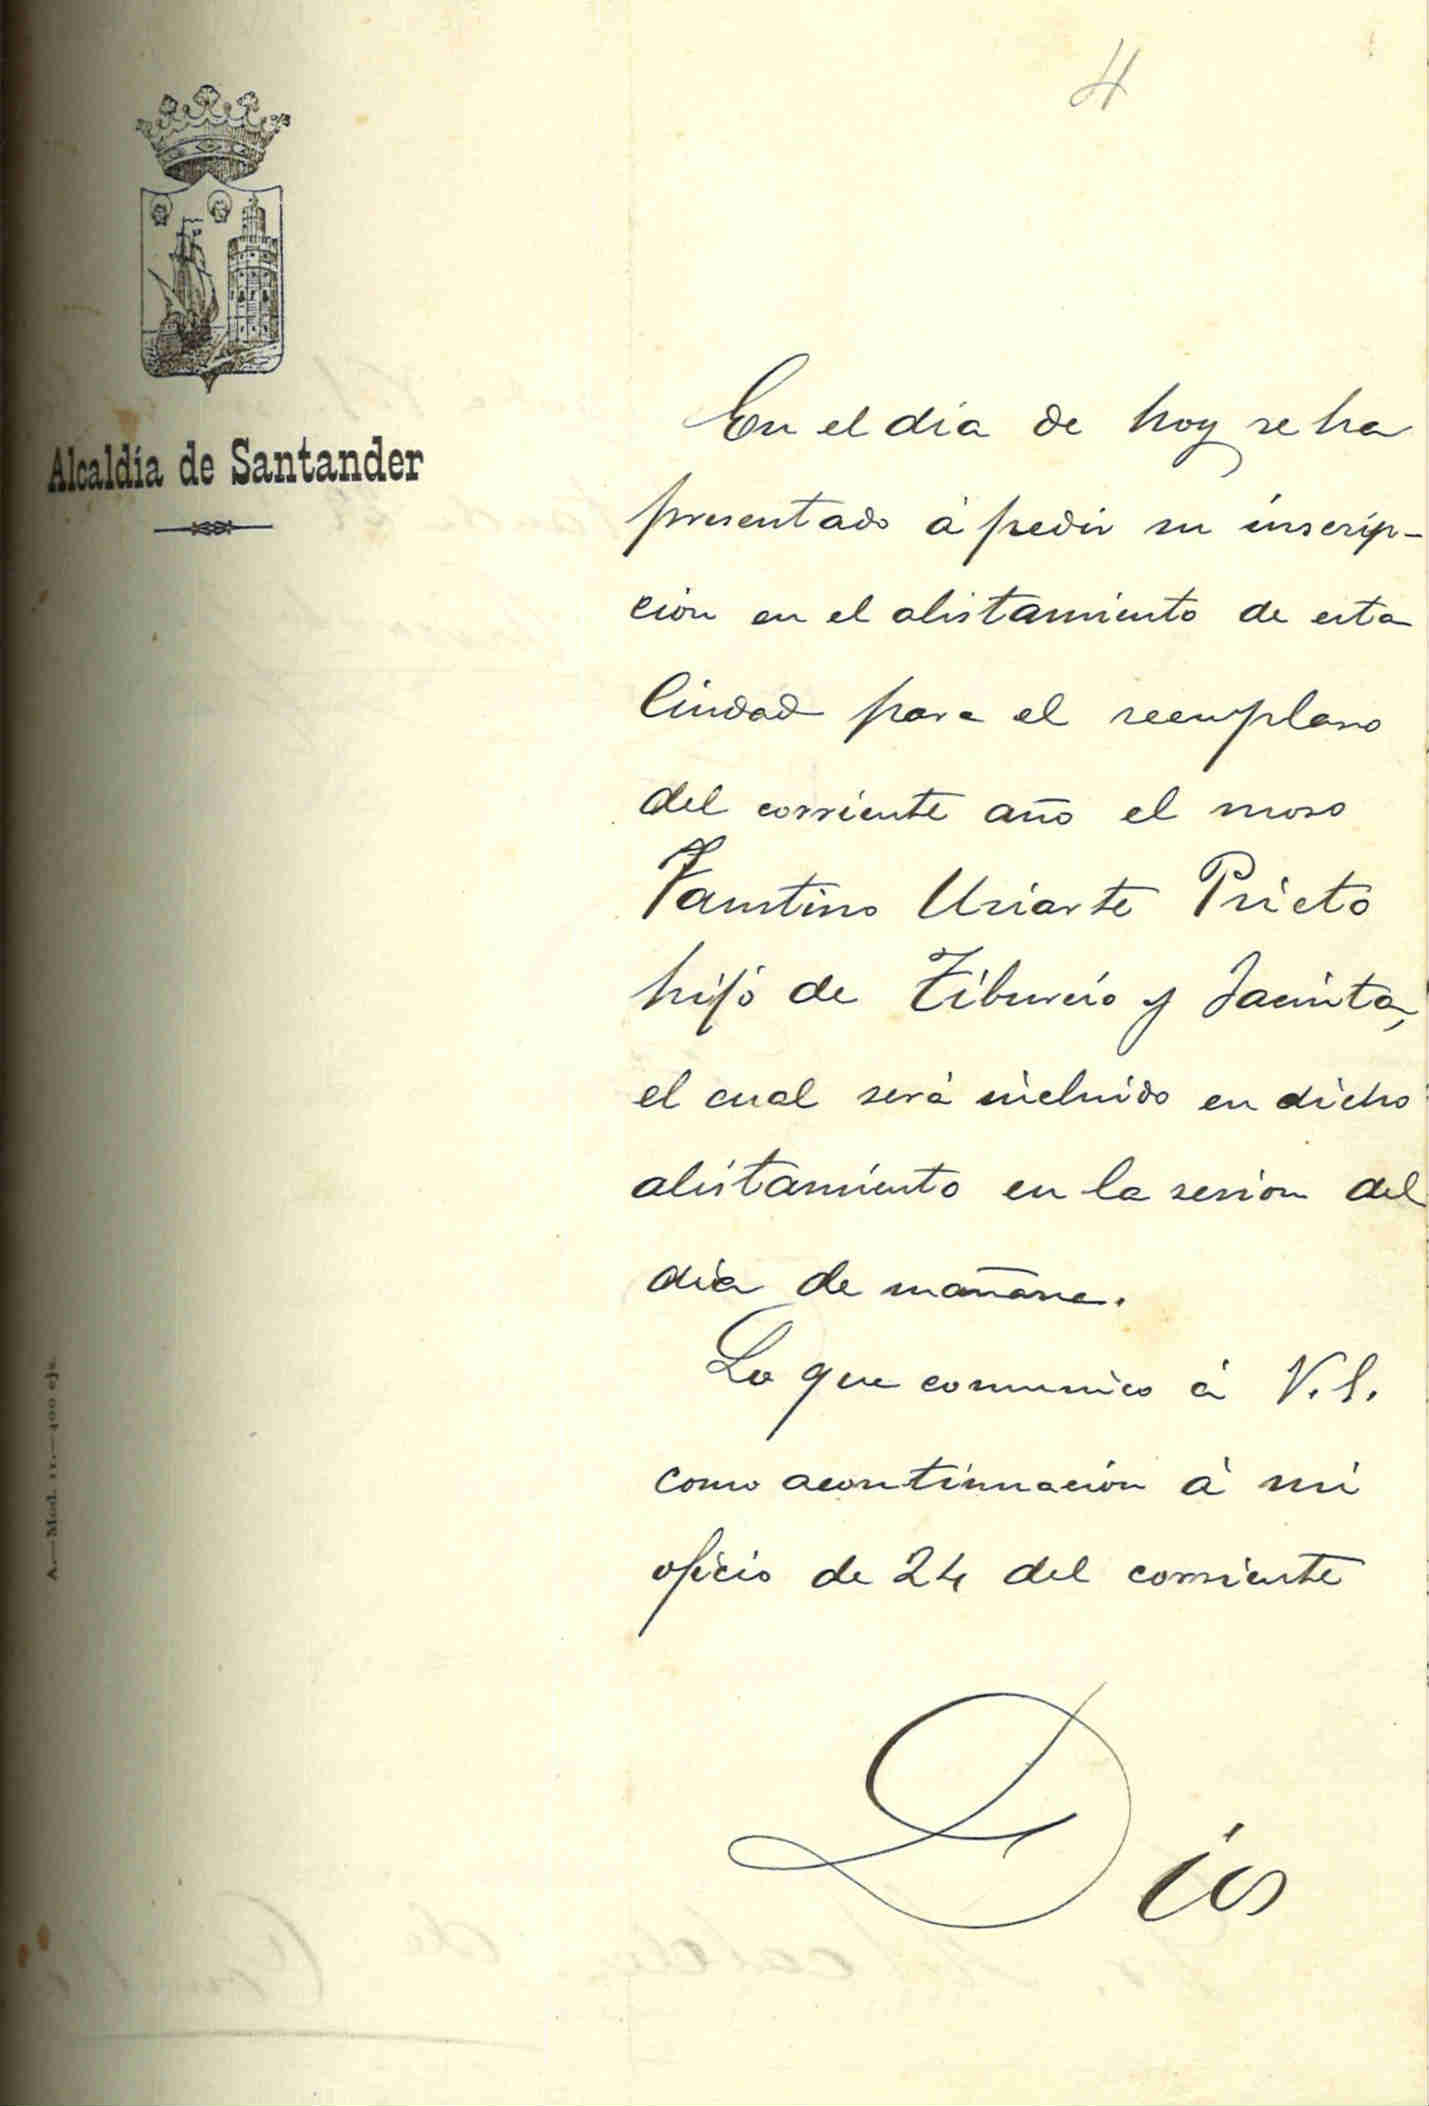 4
Alcaldía de Santander
En el dia de hoy se ha
presentado á pedir su inscrip-
ción en el alistamiento de esta
Ciudad para el reemplaso
del corriente año el moso
Faustino Uriarte Prieto
hijo de Tiburcio y Jacinta,
el cual será incluido en dicho
alistamiento en la sesion del
dia de mañana.
Lo que comunico á V.S.
como acontinuación á mi
oficio de 24 del corriente
Dios
A.—Mod. 11.—400 ejs.